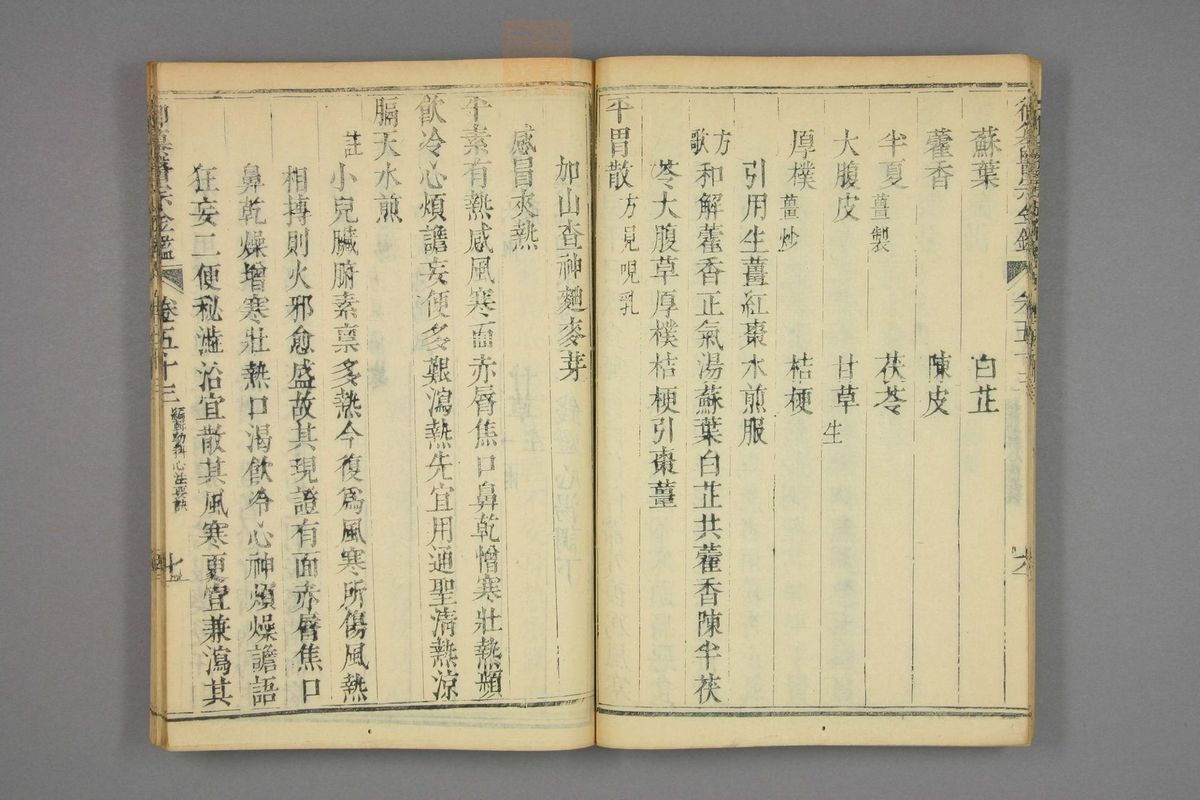 蘇葉 白芷
藿香 陳皮
半夏薑製 茯苓
大腹皮 甘草生
厚樸薑炒 桔梗
引用生薑紅棗水煎服
方歌 和解藿香正氣湯蘇葉白芷共藿香陳半茯
苓大腹草厚樸桔梗引棗薑
平胃散方見呪乳
加山查神麯麥芽
感冒夾熱
平素有熱感風寒面赤脣焦口鼻乾憎寒壯熱頻
飲冷心煩譫妄便多艱瀉熱先宜用通聖清熱涼
膈天水煎
註 小兒臟腑素禀多熱今復爲風寒所傷風熱
相摶則火邪愈盛故其現證有面赤脣焦口
鼻乾燥增寒壯熱口渴飲冷心神煩燥譫語
狂妄二便秘澁治宜散其風寒更宜兼瀉其
醫宗金鑑 卷五十三 編輯幼科心法要訣 七